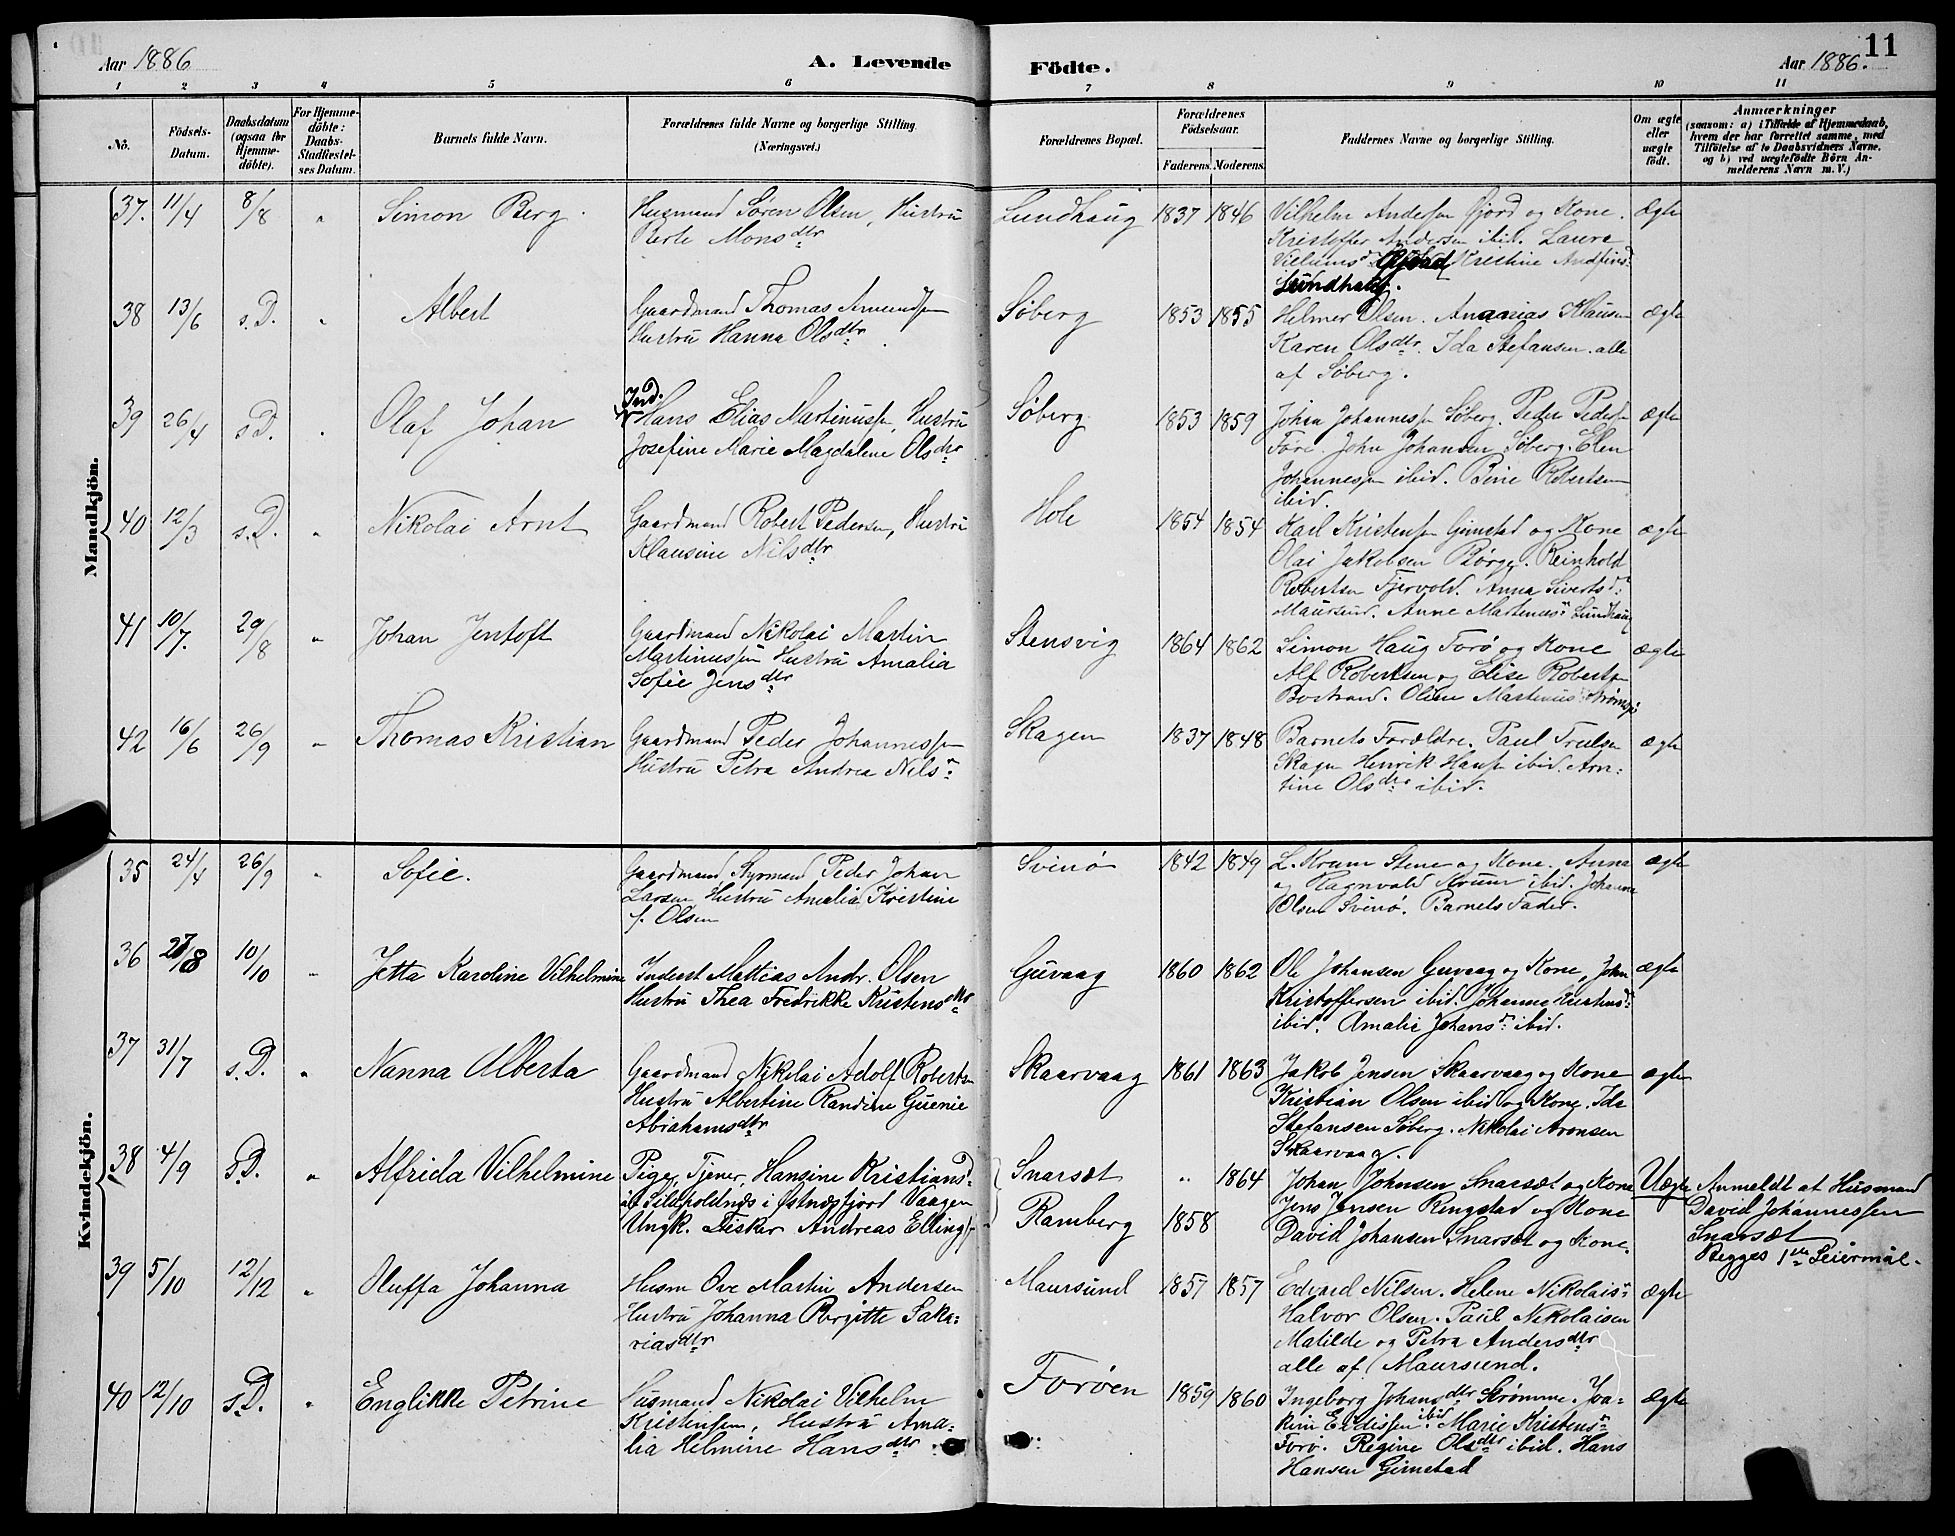 Aar 1886 A. Levende Födte. Aar 1886. 11
1 2 3 4 5 6 7 8 9 10 11
No. Födsels-Datum. Daabsdatum (ogsaa for Hjemmedöbte). For Hjemmedöbte: Daabs-Stadfestelses Datum. Barnets fulde Navn. Forældrenes fulde Navne og borgerlige Stilling. (Næringsvei.) Forældrenes Bopæl. Forældrenes Födselsaar. Faderens. Moderens. Faddernes Navne og borgerlige Stilling. Om ægte eller uægte födt. Anmærkninger (saasom: a) i Tilfælde af Hjemmedaab, hvem der har forrettet samme, med Tilföielse af to Daabsvidners Navne, og b) ved uægtefödte Börn Anmelderens Navn m. V.)
Mandkjön.
37. 11/4 8/8 " Simon Berg. Husmand Sören Olsen, Hustru Lundhaug 1837 1846 Vilhelm Andersen Fjord og Kone. Ægte
Berte Monsdtr Kristoffer Andersen ibid. Laura
Villumsd. Kristine Andfinsd.
Lundhaug.
38 13/6 s.D. " Albert Gaardmand Thomas Amundsen Söberg 1853 1855 Helmer Olsen. Ananias Klausen ægte
Hustru Hanna Olsdtr. Karen Olsdtr. Ida Stefansen. alle
af Söberg.
39 26/4 s.D. " Olaf Johan Ind. Hans Elias Martinussen, Hustru Söberg 1853 1859 Johan Johannessen Söberg. Peder Pedersen ægte
Josefine Marie Magdalene Olsdtr Före. John Johansen Söberg. Elen
Johannessen ibid. Bine Robertsen
ibid.
40 12/3 s.D. " Nikolai Arnt Gaardmand Robert Pedersen, Hustru Hole 1854 1854 Karl Kristensen Gimstad og Kone ægte
Klausine Nilsdtr Olai Jakobsen Börge. Reinhold
Robertsen Fjervold. Anna Sivertsd.
Maursund. Anne Martinusd. Lundhaug
41 10/7. 29/8 " Johan Jentoft Gaardmand Nikolai Martin Stensvig 1864 1862 Simon Haug Forö og Kone ægte
Martinussen Hustru Amalia Alf Robertsen og Elise Roberts
Sofie Jensdtr Bostrand. Oline Martinusd.
42 16/6 26/9 " Thomas Kristian Gaardmand Peder Johannessen Skagen 1837 1848 Barnets Forældre. Paul Trulsen ægte
Hustru Petra Andrea Nilsd. Skagen Henrik Hansen ibid. Arn-
tine Olsdtr ibid.
Kvindekjön.
35 24/4 26/9 " Sofie. Gaardmand Styrmand Peder Johan Svinö 1842 1849 L. Krum Stene og Kone. Anna ægte
Larsen Hustru Amalia Kristine og Ragnvald Krum ibid. Johanna
f. Olsen Olsen Svinö. Barnets Fader.
36 27/8 10/10 " Jetta Karoline Vilhelmine Inderst Mattias Andr. Olsen Guvaag 1860 1862 Ole Johansen Guvaag og Kone, John ægte
Hustru Thea Fredrikke Kristensdtr Kristoffersen ibid. Johanne Kristensd.
ibid. Amalie Johansd. ibid.
37 31/7 s.D. " Nanna Alberta Gaardmand Nikolai Adolf Robertsen Skaarvaag 1861 1863 Jakob Jensen Skaarvaag og Kone ægte
Hustru Albertine Randine Guenie Kristian Olsen ibid og Kone. Ida
Abrahamsdtr Stefansen Söberg. Nikolai Aronsen
Skaarvaag.
38 4/9 s.D. " Alfrida Vilhelmine Pige, Tjener, Hansine Kristiansd. Snarsæt " 1864 Johan Johnsen Snarsæt og Kone Uægte Anmeldt at Husmand
i Östnæsfjord Vaagen Ramberg 1858 Jens Jensen Ringstad og Kone David Johannessen
Ungk. Fisker Andreas Ellings. David Johansen Snarsæt og Kone. Snarsæt
Begges 1ste Leiermål.
39 5/10 12/12 " Oluffa Johanna Husm Ove Martin Andersen Maursund 1857 1857 Edvard Nilsen. Helene Nikolaisd. ægte
Hustru Johanna Bergitte Saka- Halvor Olsen. Paul Nikolaisen
riasdtr Matilde og Petra Andersdtr
alle af Maursund.
40 12/10 s.D. " Englikke Petrine Husmand Nikolai Vilhelm Foröen 1859 1860 Ingeborg Johansdtr Strömme. Joa- Ægte
Kristensen, Hustru Ama- kim Erdissen ibid. Marie Kristensd.
lia Helmine Hansdtr Forö. Regine Olsdtr ibid. Hans
Hansen Gimstad